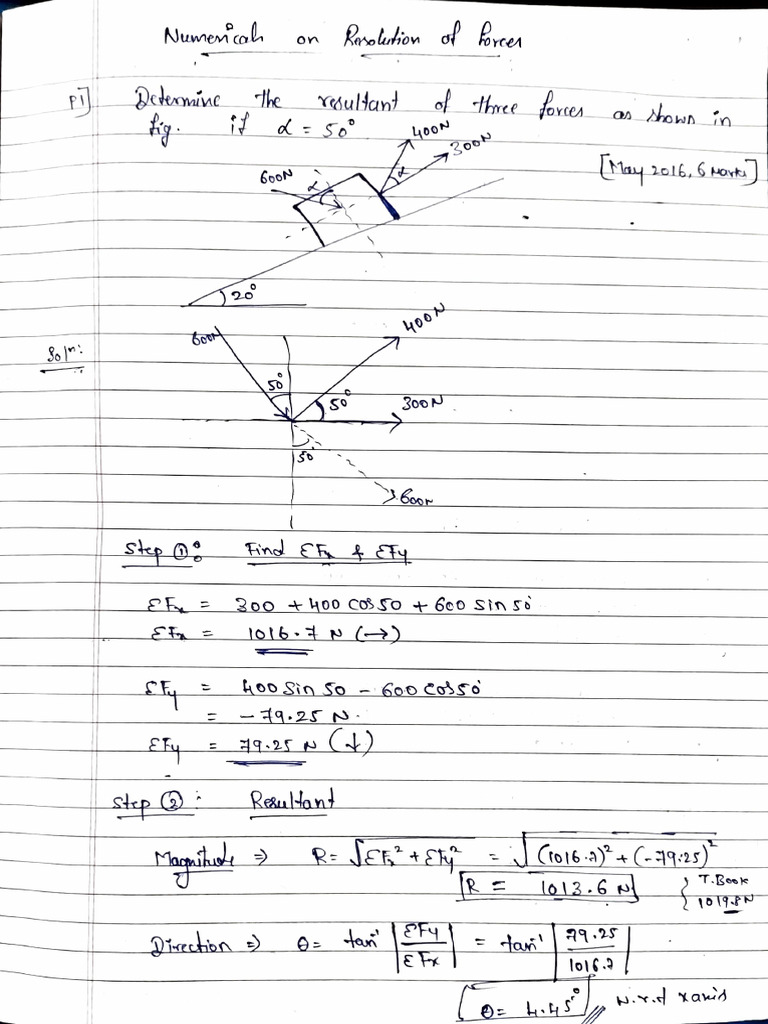 Numericals on Resolution of forces
P1] Determine the resultant of three forces as shown in
fig. if α = 50°
[May 2016, 6 Marks]
400N
300N
α
600N
α
20°
Soln:
600N
400N
50°
50°
300N
50
600N
Step ①: Find ΣFx & ΣFy
ΣFx = 300 + 400 cos 50 + 600 sin 50
ΣFx = 1016.7 N (→)
ΣFy = 400 sin 50 - 600 cos 50
= -79.25 N.
ΣFy = 79.25 N (↓)
Step ②: Resultant
Magnitude ⇒ R = √ΣFx² + ΣFy² = √(1016.7)² + (-79.25)²
R = 1013.6 N { T.Book
1019.8 N
Direction ⇒ θ = tan⁻¹ |ΣFy/ΣFx| = tan⁻¹ |79.25/1016.7|
θ = 4.45° w.r.t x axis